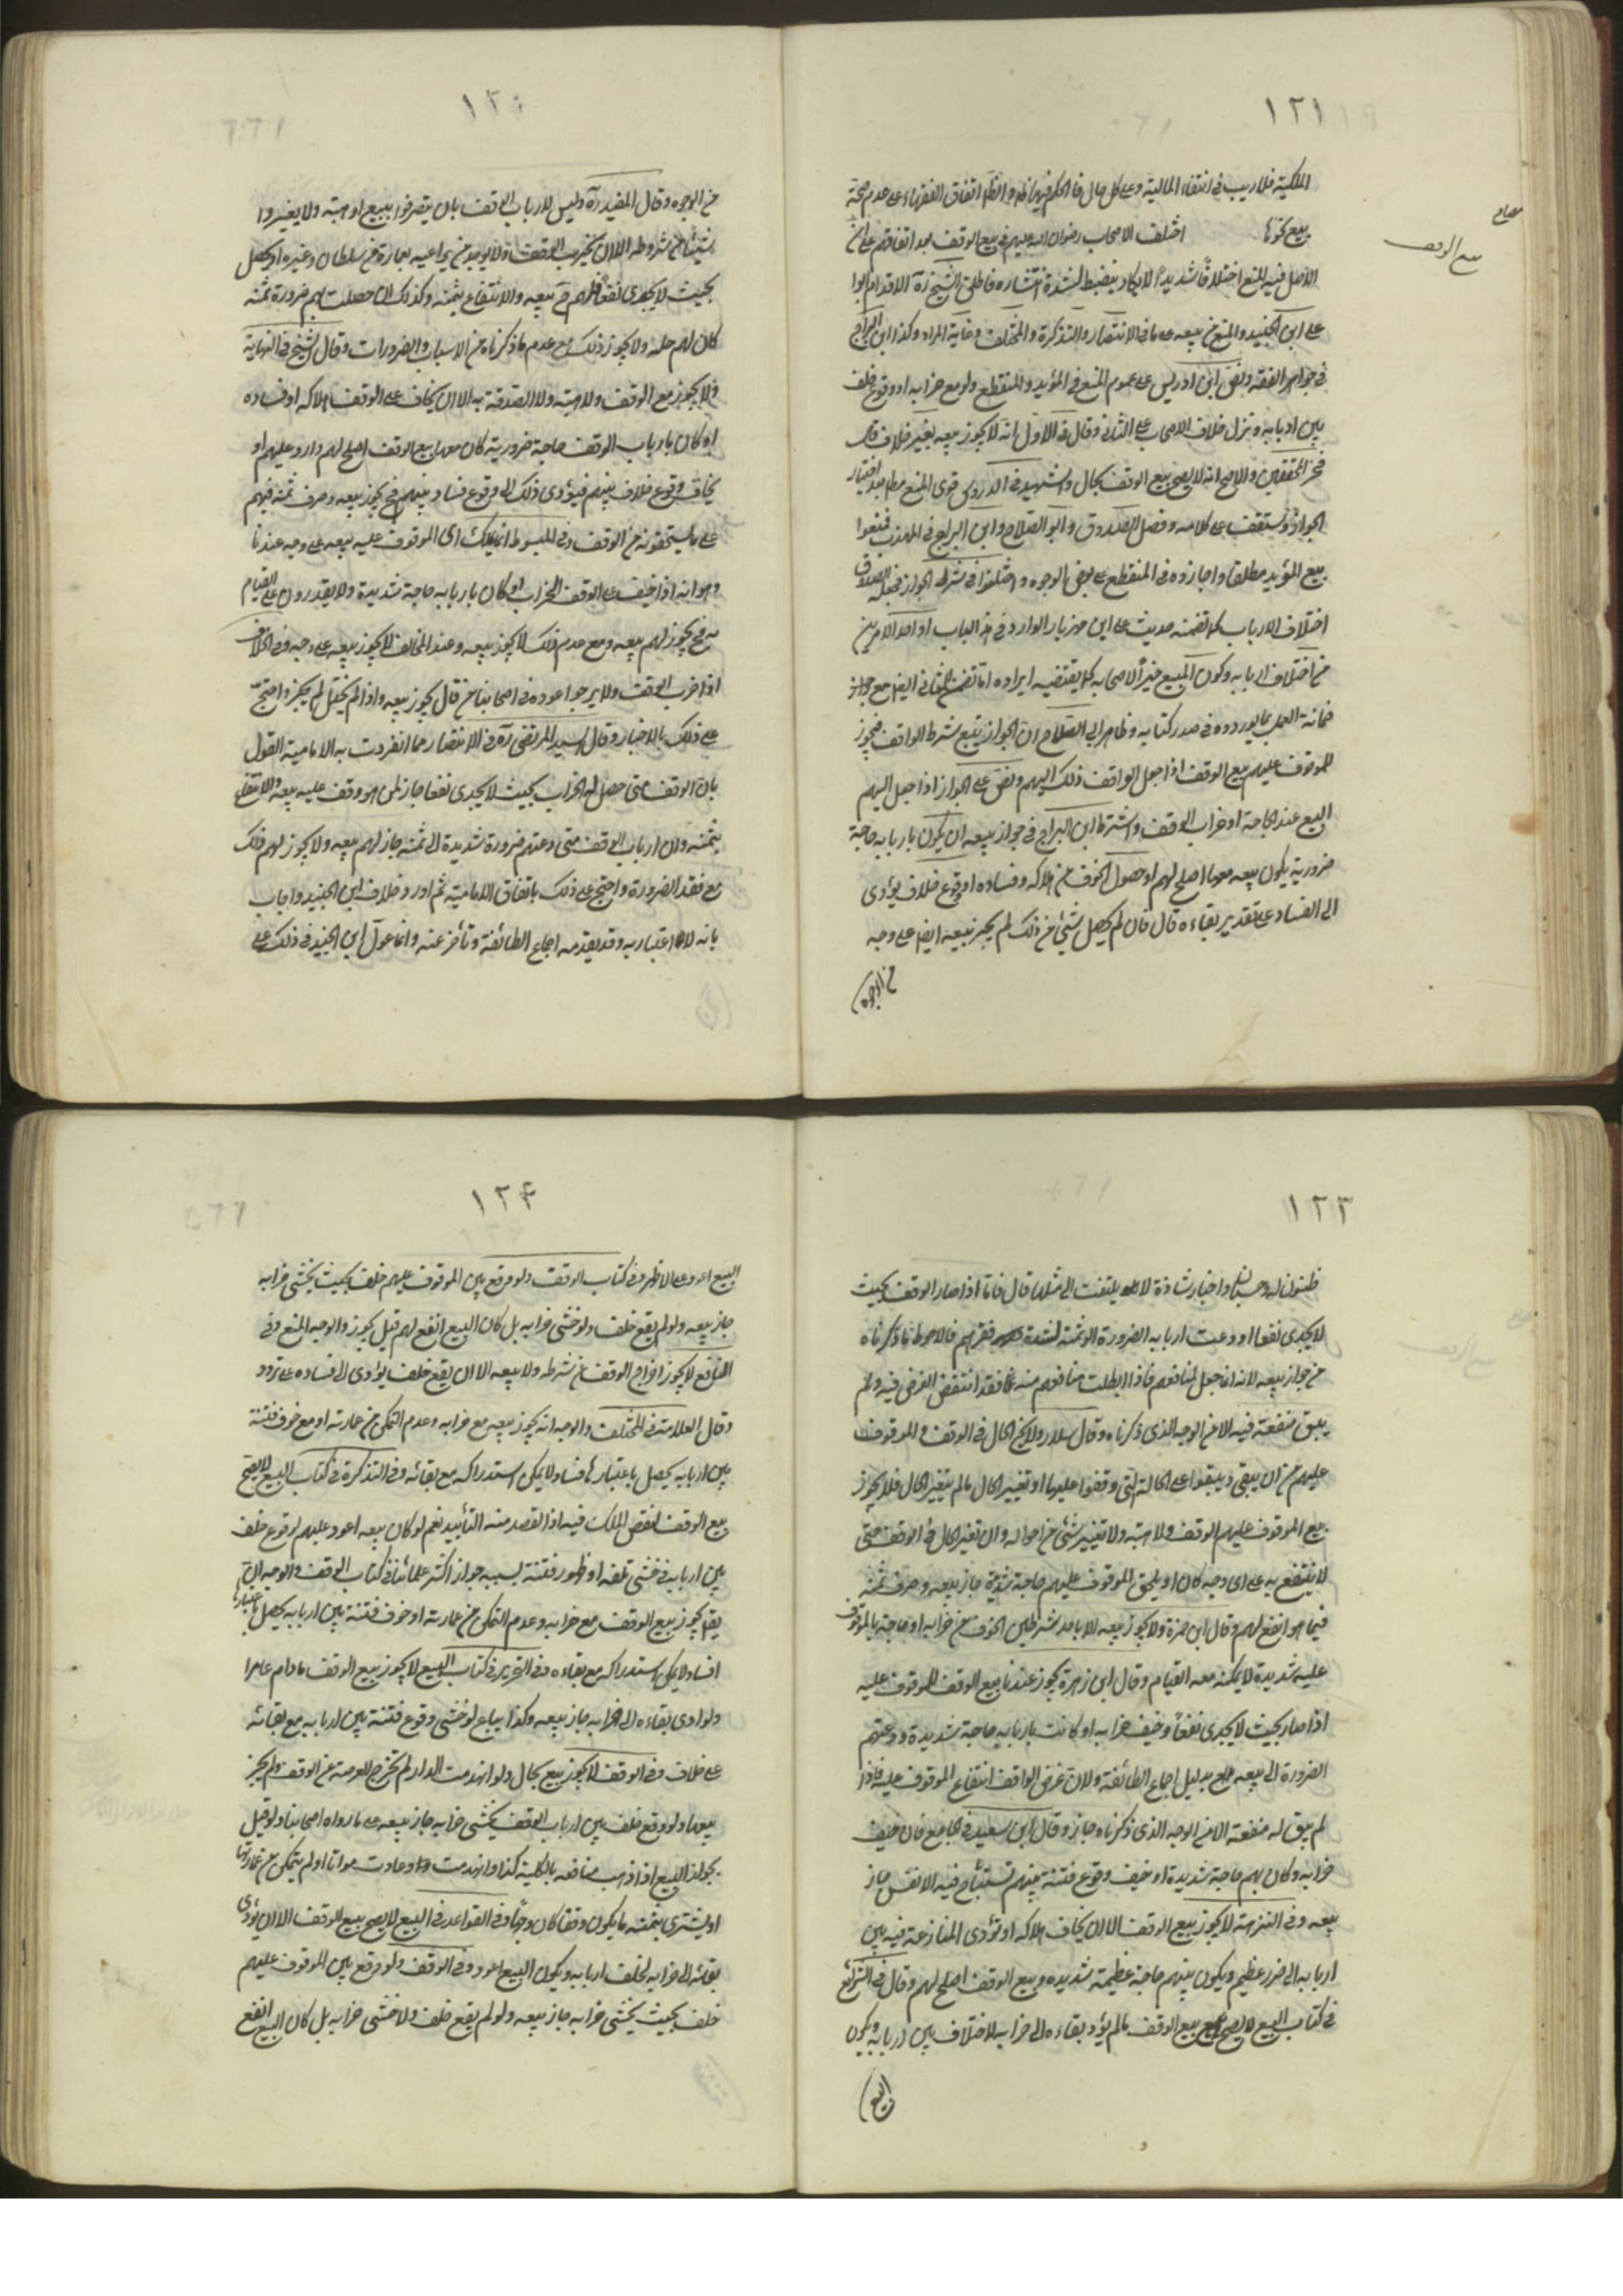 ١٢١
الملكية فلا ريب في انتفاء المالية وعلى كل حال فالحكم فيهما ظاهر والظاهر اتفاق الفقهاء على عدم صحة
بيع نحوها اختلف الاصحاب رضوان الله عليهم في بيع الوقف بعد اتفاقهم على ان
بيع الوقف
الاصل فيه المنع اختلافاً شديداً لا يكاد ينضبط لشدة انتشاره فاطلق الشيخ ره الاقدام
على ابن الجنيد والمنع من بيعه على ما في الانتصار والتذكرة والمختلف وغاية المراد وكذا ابن البراج
في جواهر الفقه ونص ابن ادريس على عموم المنع في المؤبد والمنقطع ولو مع خرابه او وقوع خلف
بين اربابه ونزل خلاف الاصحاب على الثاني وقال في الاول انه لا يجوز بيعه بغير خلاف قال
فخر المحققين والاصح انه لا يصح بيع الوقف بحال والشهيد في الدروس قوى المنع مطلقا بعد اختيار
الجواز وستقف على كلامه وفصل الصدوق وابو الصلاح وابن البراج في المهذب فمنعوا
بيع المؤبد مطلقا واجازوه في المنقطع على بعض الوجوه واختلفوا في شرط الجواز فجعله الصدوق
اختلاف الارباب كما تضمنه حديث علي ابن مهزيار الوارد في هذا الباب او احد الامرين
من اختلاف اربابه وكون المبيع خيراً لاصحابه كما يقتضيه ايراده لما تضمن الثاني ايضا مع
ضمانة العمل بما يورده في صدر كتابه وظاهر ابي الصلاح ان الجواز يتبع شرط الواقف فيجوز
للموقوف عليهم بيع الوقف اذا جعل الواقف ذلك اليهم ونص على الجواز اذا جعل اليهم
البيع عند الحاجة او خراب الوقف واشترط ابن البراج في جواز بيعه ان يكون باربابه حاجة
ضرورية يكون بيعه معها اصلح لهم او حصول الخوف من هلاكه وفساده او وقوع خلاف يؤدى
الى الفساد على تقدير بقاءه قال فان لم يحصل شئ من ذلك لم يجز بيعه ايضا على وجه
من الوجوه
من الوجوه وقال المفيد ره وليس لارباب الوقف بان يتصرفوا ببيع او هبة ولا يغيروا
شيئا من شروطه الا ان يخرب الوقف ولا يوجد من يراعيه بعمارة من سلطان وغيره او يحصل
بحيث لا يجدى نفعاً فلهم ح بيعه والانتفاع بثمنه وكذلك ان حصلت بهم ضرورة ثمنه
كان لهم حله ولا يجوز ذلك مع عدم ما ذكرناه من الاسباب والضرورات وقال الشيخ في النهاية
ولا يجوز بيع الوقف ولا هبته ولا الصدقة به الا ان يخاف على الوقف هلاكه او فساده
او كان بارباب الوقف حاجة ضرورية كان معها بيع الوقف اصلح لهم وارد عليهم او
يخاف وقوع خلاف بينهم فيؤدى ذلك الى وقوع فساد بينهم فح يجوز بيعه وصرف ثمنه فيهم
على ما يستحقونه من الوقف وفي المبسوط انما يملك اى الموقوف عليه بيعه على وجه عندنا
وهو انه اذا خيف على الوقف الخراب او كان باربابه حاجة شديدة ولا يقدرون على القيام
به فح يجوز لهم بيعه ومع عدم ذلك لا يجوز بيعه وعند المخالف لا يجوز بيعه على وجه وفي الخلاف
اذا خرب الوقف ولا يرجوا عوده في اصحابنا من قال يجوز بيعه واذا لم يختل لم يجز واحتج
على ذلك بالاخبار وقال السيد المرتضى ره في الانتصار مما انفردت به الامامية القول
بان الوقف متى حصل له الخراب بحيث لا يجدى نفعا جاز لمن هو وقف عليه بيعه والانتفاع
بثمنه وان ارباب الوقف متى دعتهم ضرورة شديدة الى ثمنه جاز لهم بيعه ولا يجوز لهم ذلك
مع فقد الضرورة واحتج على ذلك باتفاق الامامية ثم اورد خلاف ابن الجنيد واجاب
بانه لا اعتبار به وقد تقدمه اجماع الطائفة وتأخر عنه وانما عول ابن الجنيد في ذلك على
١٢٣
ظنون له وحسبان واخبار شاذة لا يلتفت الى مثلها قال فاما اذا صار الوقف بحيث
لا يجدى نفعا او دعت اربابه الضرورة الى ثمنه لشدة فقرهم فالاحوط ما ذكرناه
من جواز بيعه لانه انما جعل لمنافعهم فاذا بطلت منافعهم منه فقد انتقض الغرض فيه ولم
يبق منفعة فيه الا من الوجه الذى ذكرناه وقال سلار ولا يخلو الحال في الوقف والموقوف
عليهم من ان يبقى ويبقوا على الحالة التي وقفوا عليها او تغيير الحال فالم يتغير الحال فلا يجوز
بيع الموقوف عليهم الوقف ولا هبته ولا تغيير شئ من احواله وان تغير الحال في الوقف حتى
لا ينتفع به على اى وجه كان او يلحق الموقوف عليهم حاجة شديدة جاز بيعه وصرف ثمنه
فيما هو انفع لهم وقال ابن حمزة ولا يجوز بيعه الا باحد شرطين الخوف من خرابه او حاجة بالموقوف
عليه شديدة لا يمكنه معه القيام وقال ابن زهرة يجوز عندنا بيع الوقف للموقوف عليه
اذا صار بحيث لا يجدى نفعاً وخيف خرابه او كانت باربابه حاجة شديدة ودعتهم
الضرورة الى بيعه بدليل اجماع الطائفة ولان غرض الواقف انتفاع الموقوف عليه فاذا
لم يبق له منفعة الا من الوجه الذى ذكرناه جاز وقال ابن سعيد في الجامع فان خيف
خرابه وكان بهم حاجة شديدة او خيف وقوع فتنة بينهم تستباح فيه الانفس جاز
بيعه وفي النزهة لا يجوز بيع الوقف الا ان يخاف هلاكه او تؤدى المنازعة فيه بين
اربابه الى ضرر عظيم ويكون بينهم حاجة عظيمة شديده وبيع الوقف اصلح لهم وقال في الشرائع
في كتاب البيع لا يصح بيع الوقف مالم يؤد بقاءه الى خرابه لاختلاف بين اربابه ويكون
البيع
١٢٤
البيع اعود على الاظهر وفي كتاب الوقف ولو وقع بين الموقوف عليهم خلف بحيث يخشى خرابه
جاز بيعه ولو لم يقع خلف ولو خشى خرابه بل كان البيع انفع لهم قيل يجوز والوجه المنع وفي
النافع لا يجوز اخراج الوقف عن شرطه ولا بيعه الا ان يقع خلف يؤدى الى فساده على تردد
وقال العلامة في المختلف والوجه انه يجوز بيعه مع خرابه وعدم التمكن من عمارته او مع خوف فتنة
بين اربابه يحصل باعتبارها فساد لا يمكن استدراكه مع بقائه وفي التذكرة في كتاب البيع لا يصح
بيع الوقف لنقص الملك فيه اذ القصد منه التأبيد نعم لو كان بيعه اعود عليهم لوقوع خلف
بين اربابه وخشى تلفه او ظهور فتنة بسببه جوزه اكثر علمائنا وفي كتاب الوقف والوجه ان
يقال يجوز بيع الوقف مع خرابه وعدم التمكن من عمارته او خوف فتنة بين اربابه يحصل باعتبارها
فساد لا يمكن استدراكه مع بقاءه وفي التحرير في كتاب البيع لا يجوز بيع الوقف مادام عامرا
ولو ادى بقاءه الى خرابه جاز بيعه وكذا يباع لو خشى وقوع فتنة بين اربابه مع بقائه
على خلاف وفي الوقف لا يجوز بيع بحال ولو انهدمت الدار لم تخرج العرصة عن الوقف ولم يجز
بيعها ولو وقع خلف بين ارباب الوقف يخشى خرابه جاز بيعه على ما رواه اصحابنا ولو قيل
بجواز البيع اذا ذهب منافعه بالكلية كدار انهدمت وعادت مواتا او لم يتمكن من عمارتها
او يشترى بثمنه ما يكون وقفا كان وجها وفي القواعد في البيع لا يصح بيع الوقف الا ان يؤدى
بقائه الى خرابه لخلف اربابه ويكون البيع اعود وفي الوقف ولو وقع بين الموقوف عليهم
خلف بحيث يخشى خرابه جاز بيعه ولو لم يقع خلف ولا خشى خرابه بل كان البيع انفع